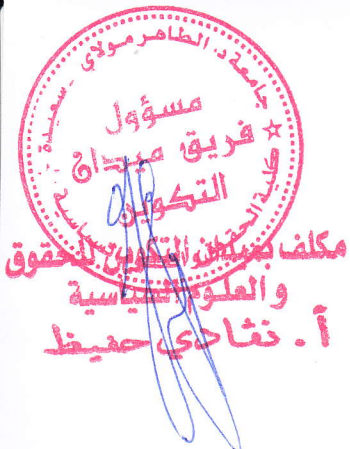 جامعة د. الطاهر مولاي - سعيدة
كلية الحقوق
مسؤول
فريق ميدان
التكوين
مكلف بميدان التكوين للحقوق
والعلوم السياسية
أ. نقادي حفيظ